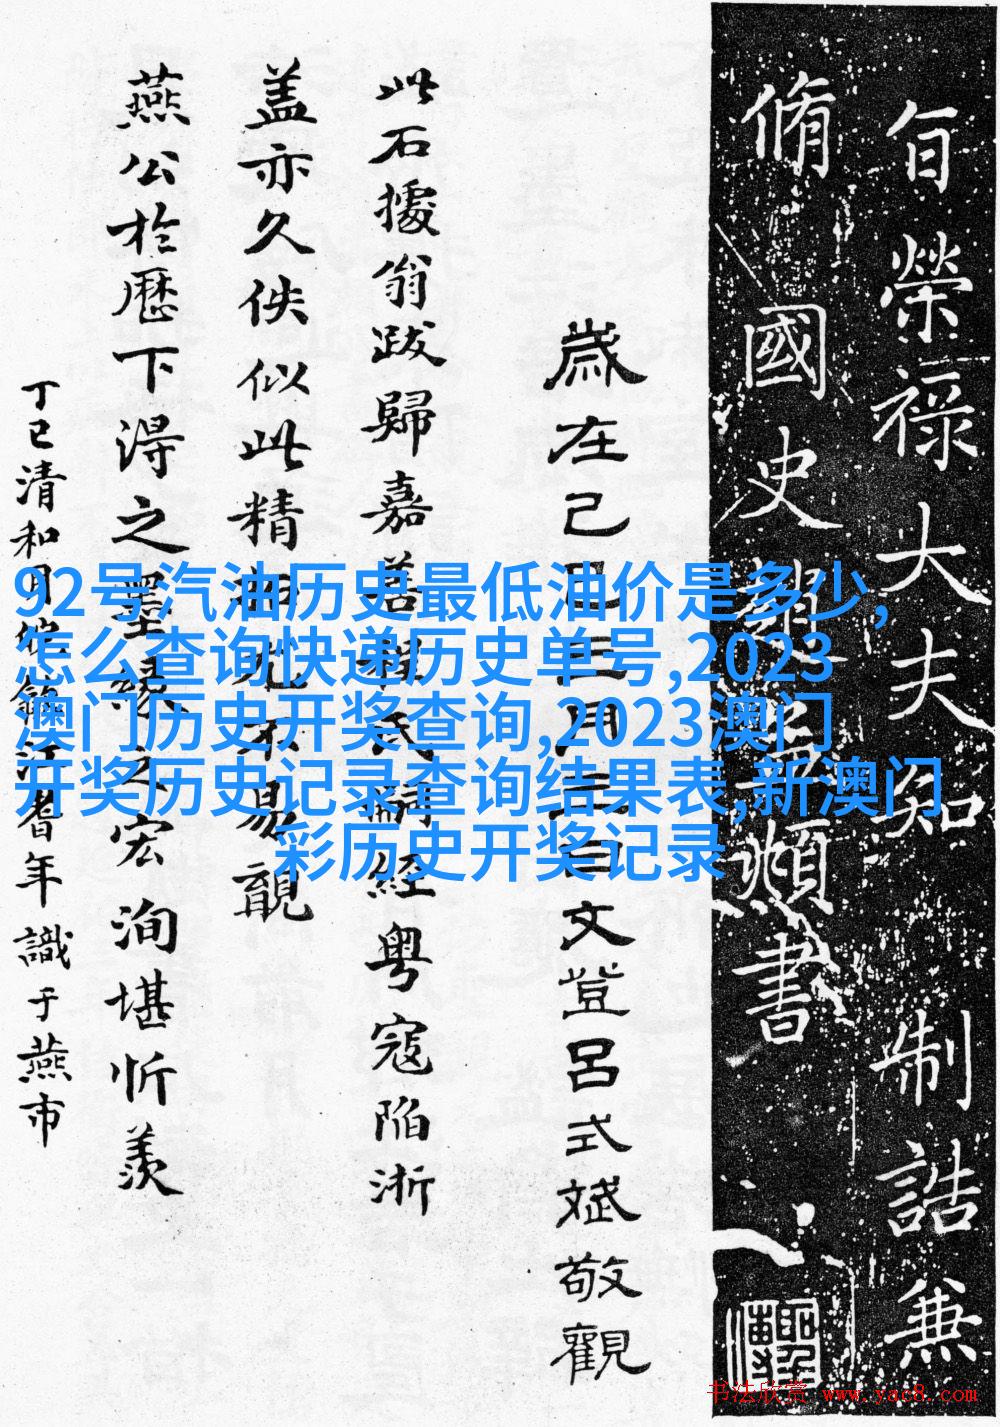 旨榮祿大夫知 制誥兼
脩國史 頫書
歲在己巳三月三日文登呂式斌敬觀
此石據翁跋歸嘉善程氏嗣經粵寇陷淅
蓋亦久佚似此精拓尤不易覯
燕公於歷下淂之墨緣之宏洵堪忻羨
丁巳清和月 年識于燕市
92号汽油历史最低油价是多少,
怎么查询快递历史单号,2023
澳门历史开奖查询,2023澳门
开奖历史记录查询结果表,新澳门
彩历史开奖记录
书法欣赏 www.yac8.com